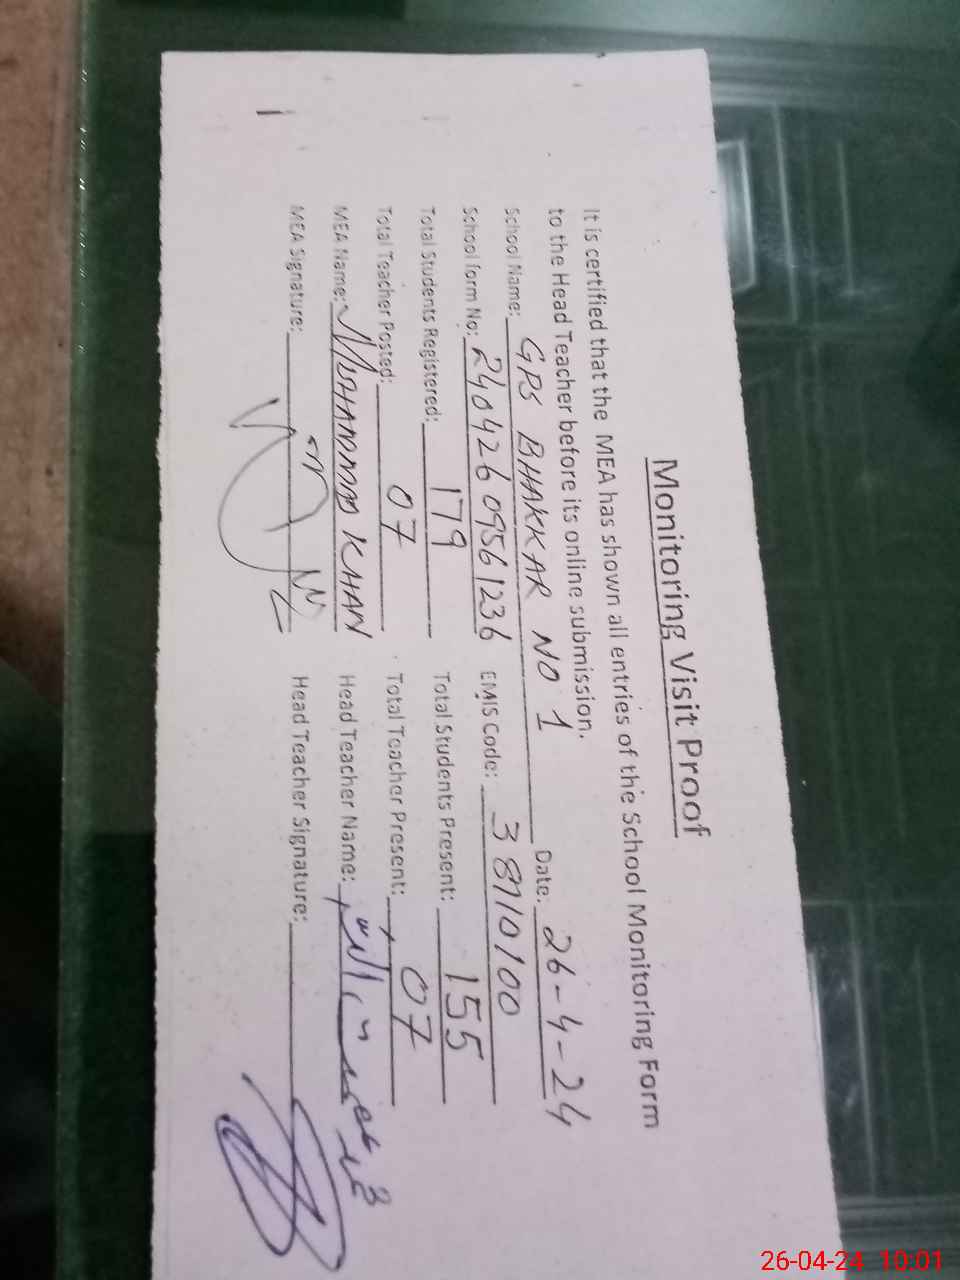 Monitoring Visit Proof
It is certified that the MEA has shown all entries of the School Monitoring Form
to the Head Teacher before its online submission.
School Name: GPS BHAKKAR NO 1 Date: 26-4-24
School form No: 24042609561236 EMIS Code: 38710100
Total Students Registered: 179 Total Students Present: 155
Total Teacher Posted: 07 Total Teacher Present: 07
MEA Name: MUHAMMAD KHAN Head Teacher Name:
MEA Signature: Head Teacher Signature:
26-04-24 10:01